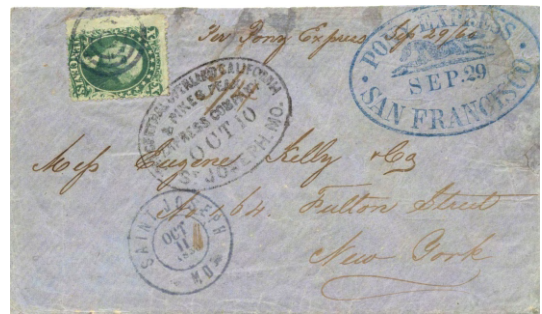 Per Pony Express Sep 29/60
PONY EXPRESS
SEP. 29
SAN FRANCISCO
TEN CENTS
CENTRAL OVERLAND CALIFORNIA
& PIKES PEAK
EXPRESS COMPANY
OCT 10
ST JOSEPH, MO.
Mess Eugene Kelly & Co
No 64 Fulton Street
New York
SAINT JOSEPH MO
OCT
11